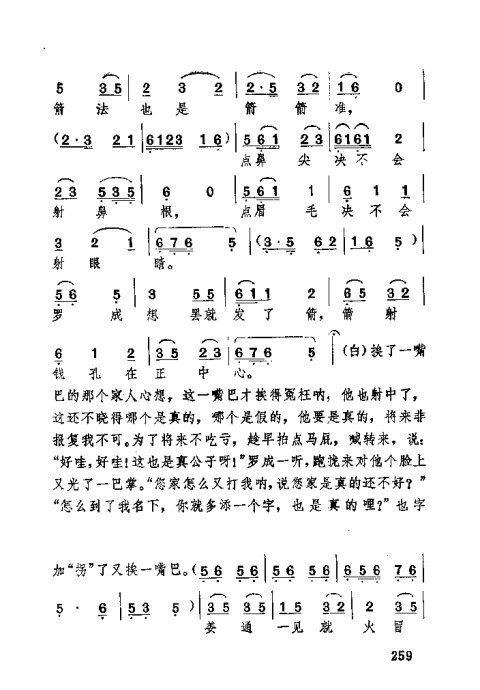 5 35 | 2 3 2 | 2·5 32 | 16 0 |
箭 法 也 是 箭 箭 准，
(2·3 21 | 6123 16) | 561 23 | 6161 2 |
点鼻 尖 决 不 会
23 535 | 6 0 | 561 1 | 6 1 1 |
射 鼻 根， 点眉 毛 决 不 会
3 2 1 | 676 5 | (3·5 62 | 16 5) |
射 眼 睛。
56 5 | 3 55 | 611 2 | 65 32 |
罗 成 想 罢就 发 了 箭，箭 射
6 1 2 | 35 23 | 676 5 | (白)挨了一嘴
钱 孔 在 正 中 心。
巴的那个家人心想，这一嘴巴才挨得冤枉呐，他也射中了，
这还不晓得哪个是真的，哪个是假的，他要是真的，将来非
报复我不可。为了将来不吃亏，趁早拍点马屁，喊转来，说：
“好哇，好哇！这也是真公子呀！”罗成一听，跑拢来对他个脸上
又光了一巴掌。“您家怎么又打我呐，说您家是真的还不好？”
“怎么到了我名下，你就多添一个字，也是真的哩？”也字
加“拐”了又挨一嘴巴。(56 56 | 56 56 | 656 76 |
5 · 6 | 53 5) | 35 35 | 15 32 | 2 35 |
姜 通 一见 就 火 冒
259